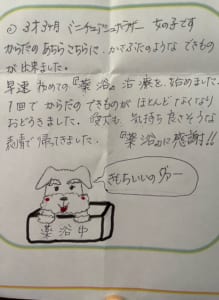 ① 3才3ヶ月 ミニチュアシュナウザー 女の子です
からだのあちらこちらに、かさぶたのような できもの
が出来ました。
早速 初めての『薬浴』治療を始めました。
1回でからだのできものが ほとんどなくなり
おどろきました。 気持ち良さそうな
表情で帰ってきました。 『薬浴』に感謝!!
きもちいいの ヴァー
薬浴中